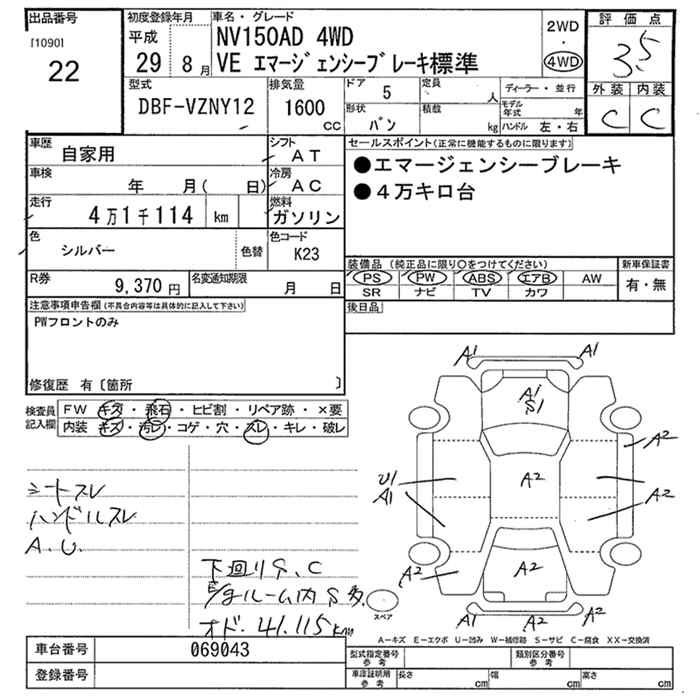 出品番号
[1090]
22
初度登録年月
平成
29 8月
車名・グレード
NV150AD 4WD
VE エマージェンシーブレーキ標準
2WD
・
4WD
評価点
3.5
外装 内装
C C
型式
DBF-VZNY12
排気量
1600
cc
ドア 5
定員 人
形状
バン
積載 kg
ディーラー・並行
モデル年式 年
ハンドル 左・右
車歴
自家用
シフト
AT
車検
年 月( 日)
冷房
AC
走行
4万1千114 km
燃料
ガソリン
色
シルバー
色替
色コード
K23
R券
9,370円
名変通知期限
月 日
セールスポイント(正常に機能するものに限ります)
●エマージェンシーブレーキ
●4万キロ台
装備品 (純正品に限り○をつけてください)
PS PW ABS エアB AW
SR ナビ TV カワ
新車保証書
有・無
後日品
注意事項申告欄(不具合内容等は具体的に記入して下さい)
PWフロントのみ
修復歴 有〔箇所 〕
検査員
記入欄
FW キズ・飛石・ヒビ割・リペア跡・×要
内装 キズ・汚レ・コゲ・穴・スレ・キレ・破レ
シートスレ
ハンドルスレ
A.U.
下回りS、C
E/gルーム内S多
オド.41.115km
A1 A1
A1
S1
A2
U1
A1
A2
A2
A2
A2
A2
A1 A2 A2
スペア
A-キズ E-エクボ U-凹み W-補修跡 S-サビ C-腐食 XX-交換済
車台番号
069043
登録番号
型式指定番号
参考
類別区分番号
参考
車庫証明用
参考
長さ cm
幅 cm
高さ cm